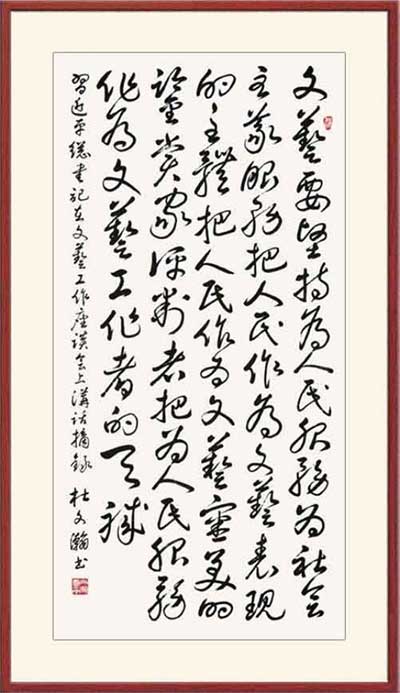 文藝要堅持為人民服務为社会
主義服務把人民作為文藝表現
的主體把人民作为文藝審美的
鑒賞家評判者把为人民服務
作為文藝工作者的天職
習近平總書記在文藝工作座談會上講話摘錄 杜文瀚书